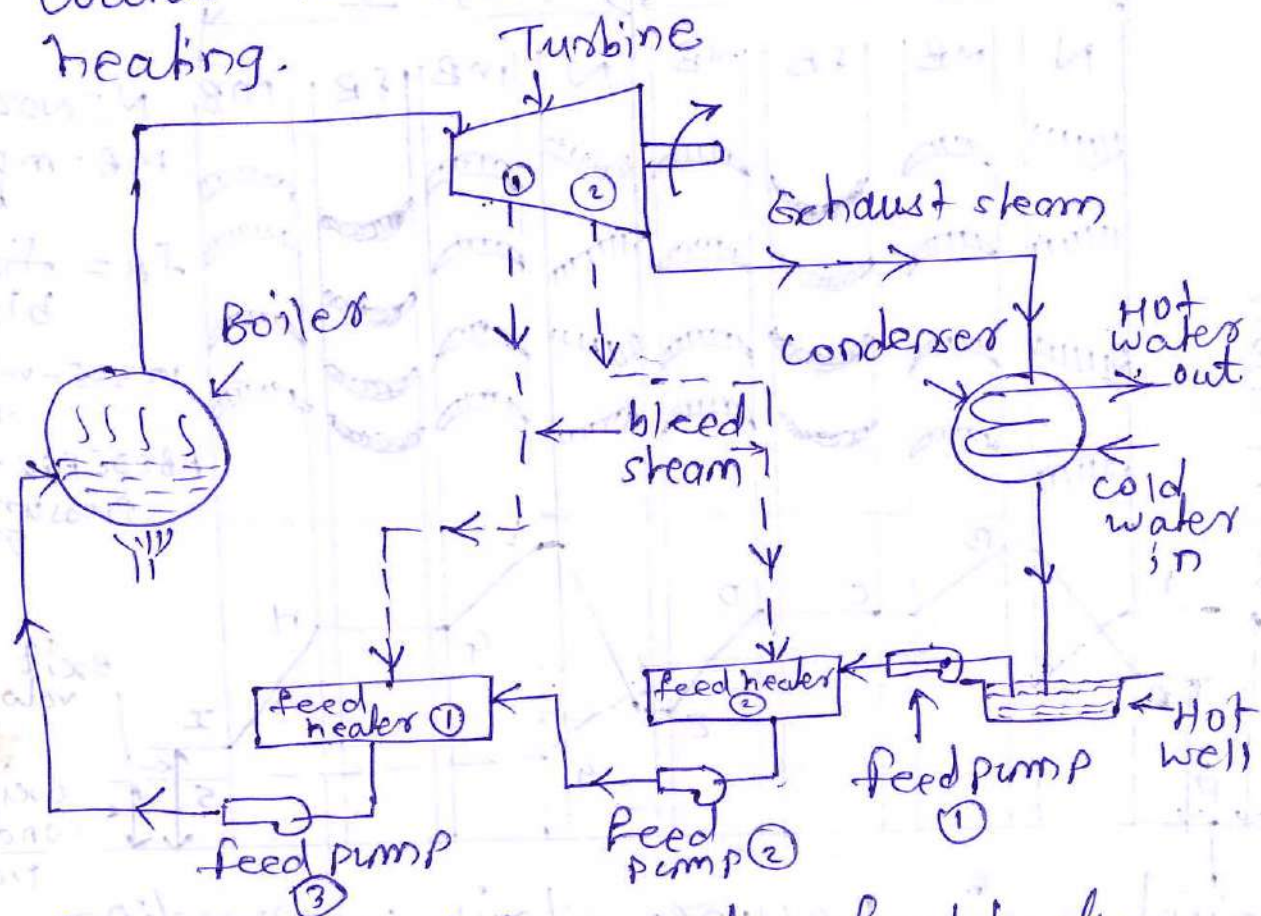 heating.
Turbine
① ②
Exhaust steam
Boiler
condenser
Hot
water
out
bleed
steam
cold
water
in
feed
heater ①
feed heater
②
Hot
well
feed pump
①
feed
pump ②
feed pump
③